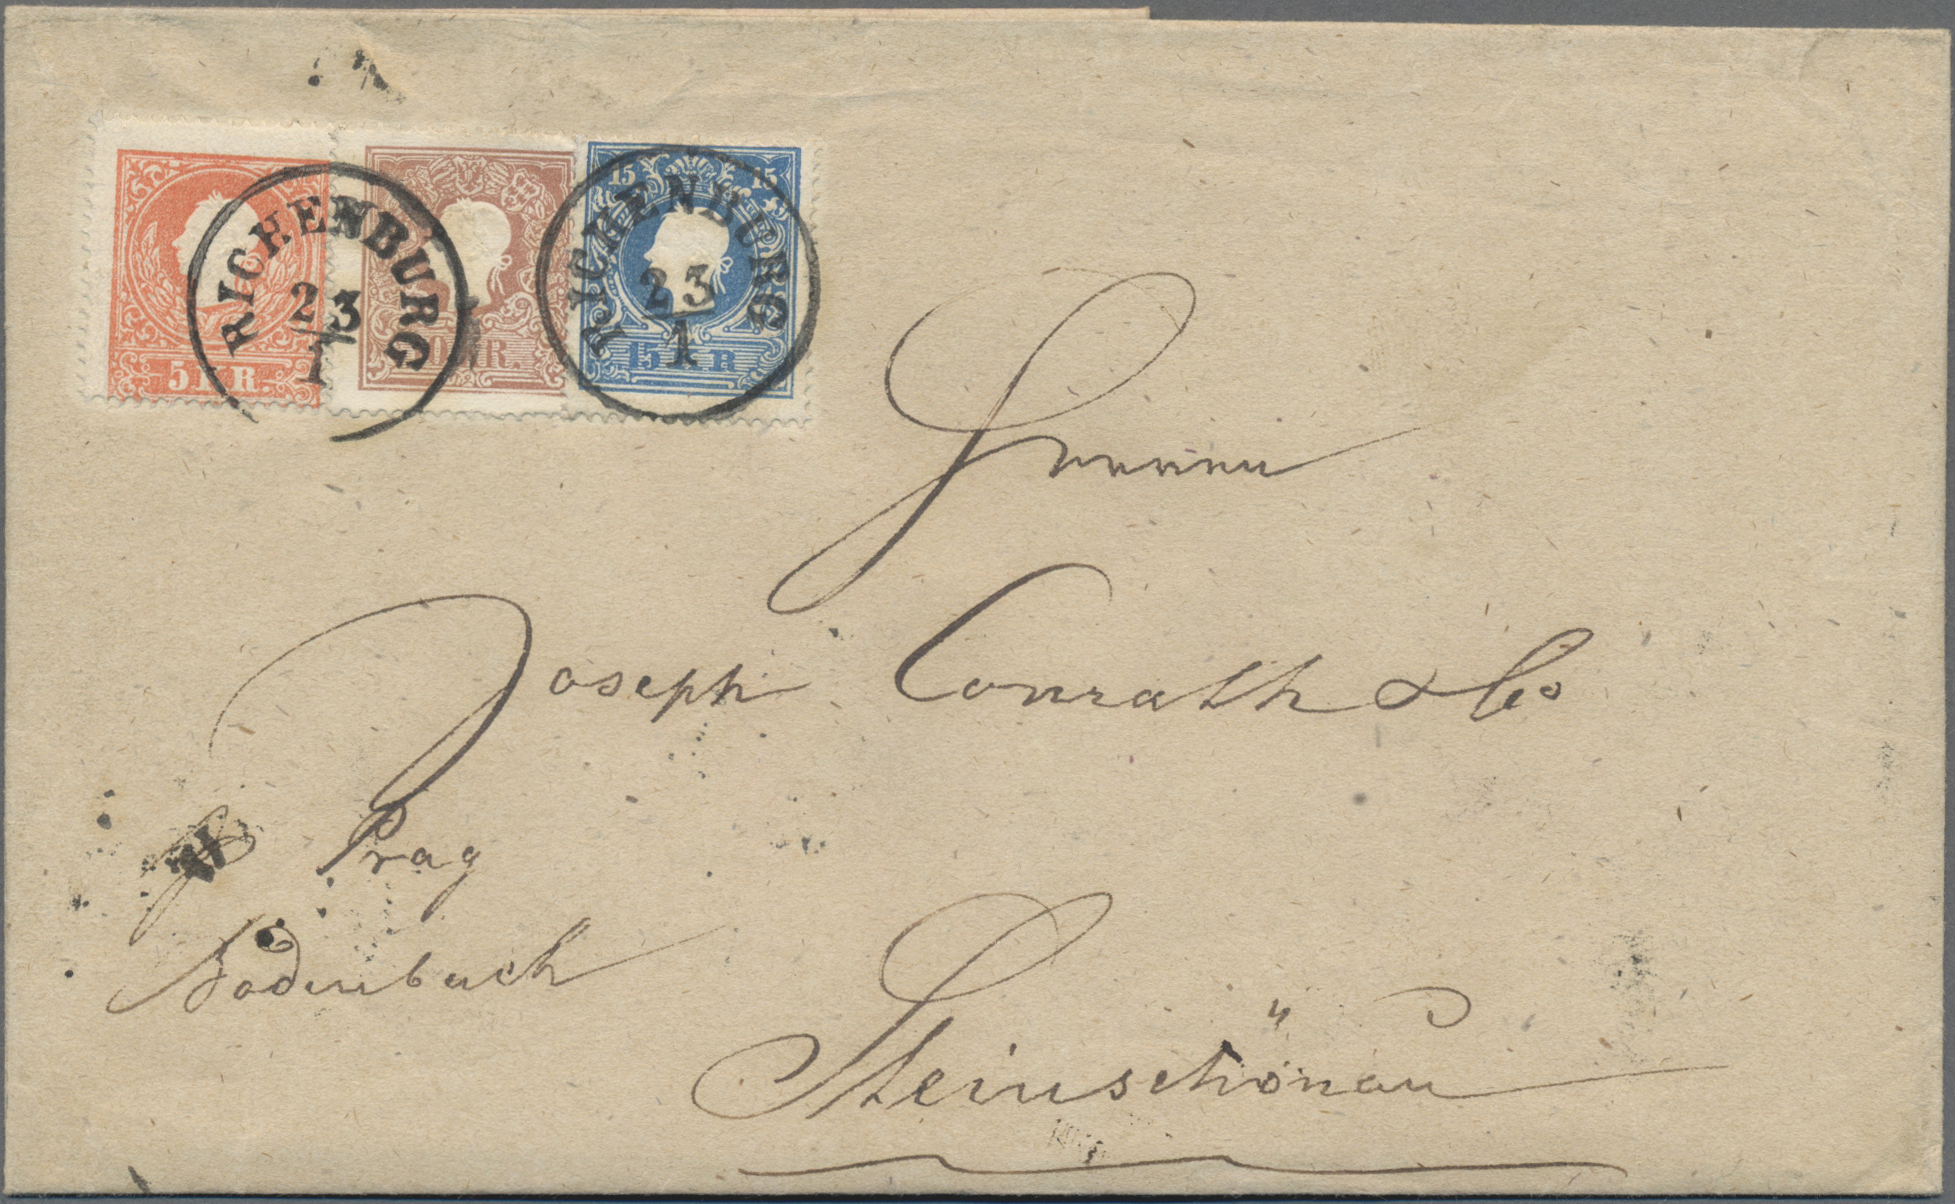 RICHENBURG
23
1
5 KR.
RICHENBURG
23
1
15 15
15 KR
Herren
Joseph Conrath & Co
Prag
Bodenbach
Steinschönau